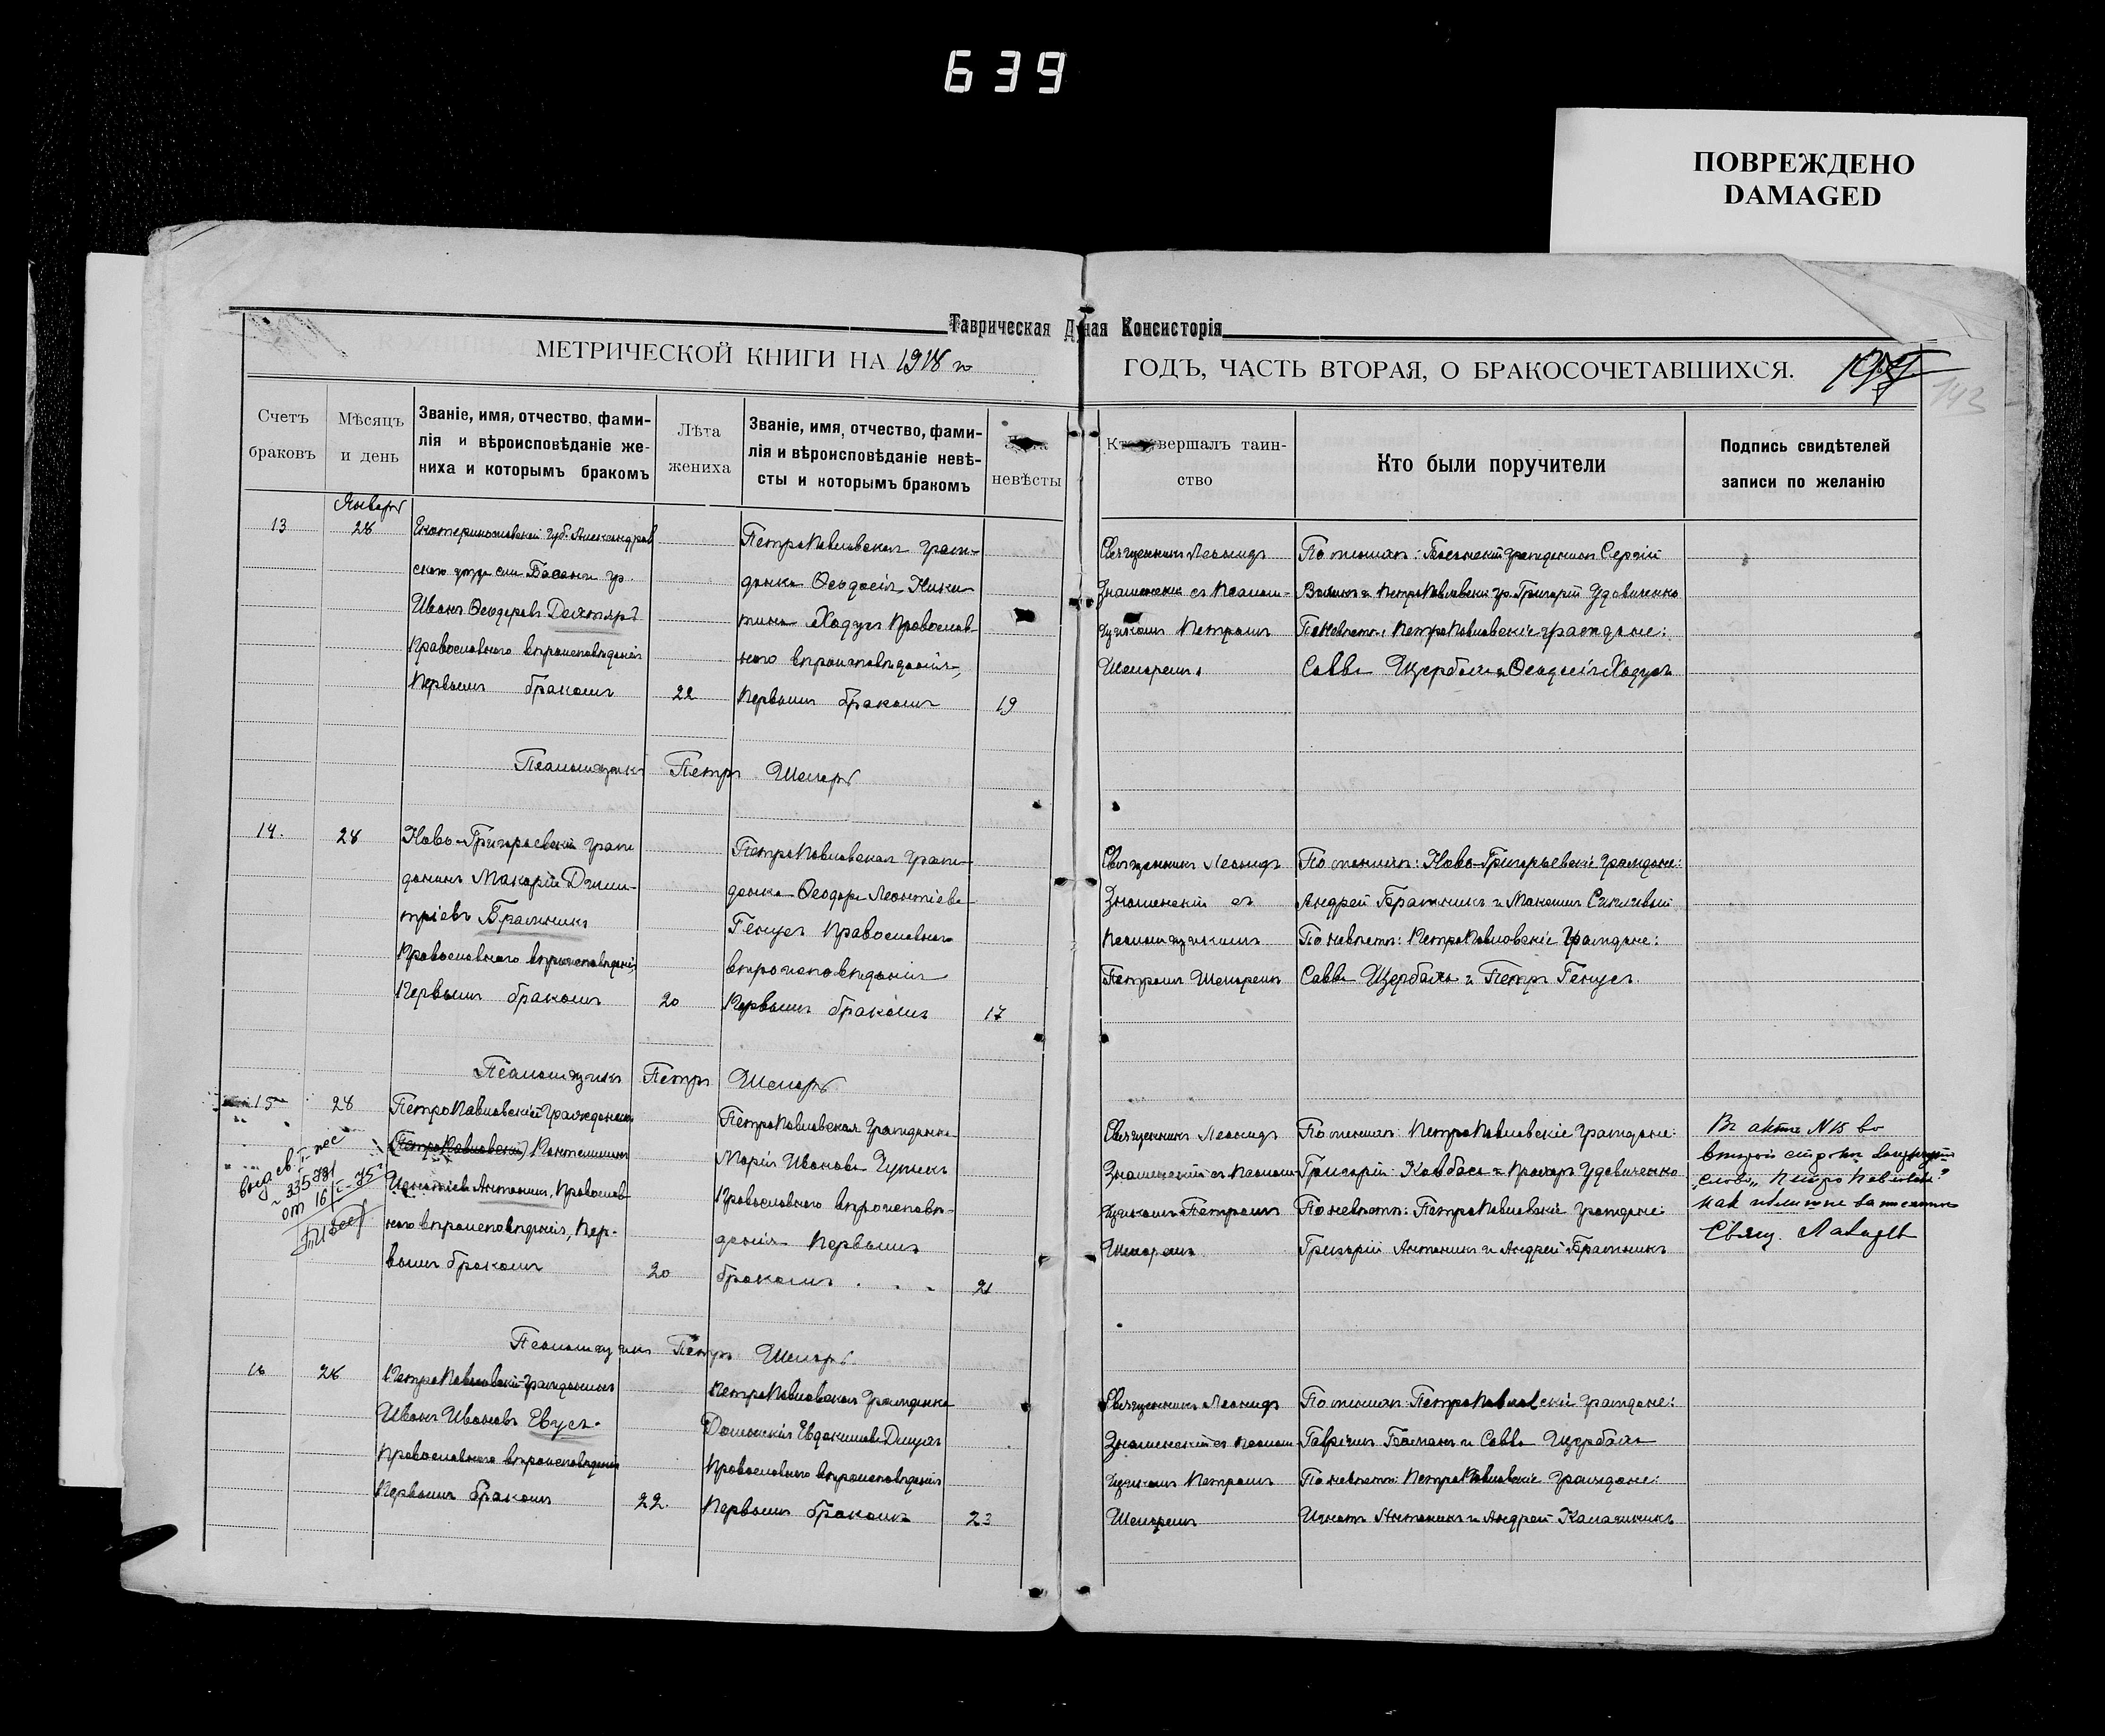 639
ПОВРЕЖДЕНО
DAMAGED
Таврическая Д ная Консисторія
МЕТРИЧЕСКОЙ КНИГИ НА 1918 г
ГОДЪ, ЧАСТЬ ВТОРАЯ, О БРАКОСОЧЕТАВШИХСЯ.
143
Счетъ
браковъ
Мѣсяцъ
и день
Званіе, имя, отчество, фами-
лія и вѣроисповѣданіе же-
ниха и которымъ бракомъ
Лѣта
жениха
Званіе, имя, отчество, фами-
лія и вѣроисповѣданіе невѣ-
сты и которымъ бракомъ
невѣсты
Кто совершалъ таин-
ство
Кто были поручители
Подпись свидѣтелей
записи по желанію
13
Январь
28
Екатеринославской губ. Александров
скаго уезда села Басани гр.
Иванъ Ѳеодоровъ Дегтярь
Православного вѣроисповѣданія
Первымъ бракомъ
22
ПетроПавловская граж-
данка Ѳеодосія Ники
тина Ходусъ Православ
ного вѣроисповѣданія,
Первымъ бракомъ
19
Священникъ Леонидъ
Знаменскій съ Псалом-
щикомъ Петромъ
Шепаремъ
По женихѣ: Басанскій гражданинъ Сергій
и ПетроПавловскій гр. Григорій Удовиченко
По невѣстѣ: ПетроПавловскіе граждане:
Савва Щербакъ и Ѳеодосій Ходусъ
Псаломщикъ Петръ Шепарь
14.
28
Ново-Григорьевскій граж
данинъ Макарій Дими-
тріевъ Бражникъ
Православного вѣроисповѣданія
Первымъ бракомъ
20
ПетроПавловская граж-
данка Ѳеодора Леонтіева
Генусъ Православного
вѣроисповѣданія
Первымъ бракомъ
17
Священникъ Леонидъ
Знаменскій съ
Псаломщикомъ
Петромъ Шепаремъ
По женихѣ: Ново-Григорьевскіе граждане:
Андрей Бражникъ и Максимъ
По невѣстѣ: ПетроПавловскіе граждане:
Савва Щербакъ и Петръ Генусъ.
Псаломщикъ Петръ Шепарь
15
28
выдав. I-пес
335781
от 16/I-75г
ПетроПавловскій гражданинъ
(ПетроПавловскій) Контемиронъ
Игнатіевъ Антоникъ, Православ
ного вѣроисповѣданія, Пер-
вымъ бракомъ
20
ПетроПавловская гражданка
Марія Иванова Чуникъ
Православного вѣроисповѣ-
данія Первымъ
бракомъ . . .
21
Священникъ Леонидъ
Знаменскій съ Псалом
щикомъ Петромъ
Шепаремъ
По женихѣ: ПетроПавловскіе граждане:
Григорій Ковбаса и Прохоръ Удовиченко
По невѣстѣ: ПетроПавловскіе граждане:
Григорій Антоникъ и Андрей Бражникъ
Въ актѣ №15 во
второй строкѣ
слово „ПетроПавловскій"
какъ излишне записанное
Свящ.
Псаломщикъ Петръ Шепарь.
16
28
ПетроПавловскій гражданинъ
Иванъ Ивановъ Евусъ.
Православного вѣроисповѣданія
Первымъ бракомъ
22.
ПетроПавловская гражданка
Домникія Евдокимова
Православного вѣроисповѣданія
Первымъ бракомъ
23
Священникъ Леонидъ
Знаменскій съ Псалом
щикомъ Петромъ
Шепаремъ
По женихѣ: ПетроПавловскіе граждане:
Гавріилъ и Савва Щербакъ
По невѣстѣ: ПетроПавловскіе граждане:
Игнатъ Антоникъ и Андрей Калачникъ